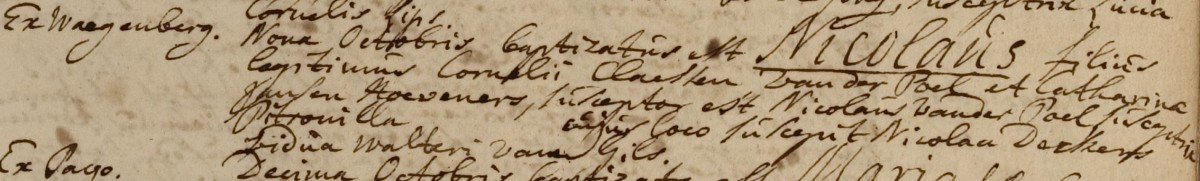 susceptrix Lucia
Ex Waegenberg. Cornelis Zips.
Nona Octobris baptizatus est Nicolaus filius
legitimus Cornelii Claessen vander Poel et Catharina
Jansen Hoeveners, susceptor est Nicolaus vander Poel susceptrix
Petronilla cujus loco suscepit Nicolaa Derkers
vidua Walteri van Gils.
Ex Pago. Decima Octobris Maria